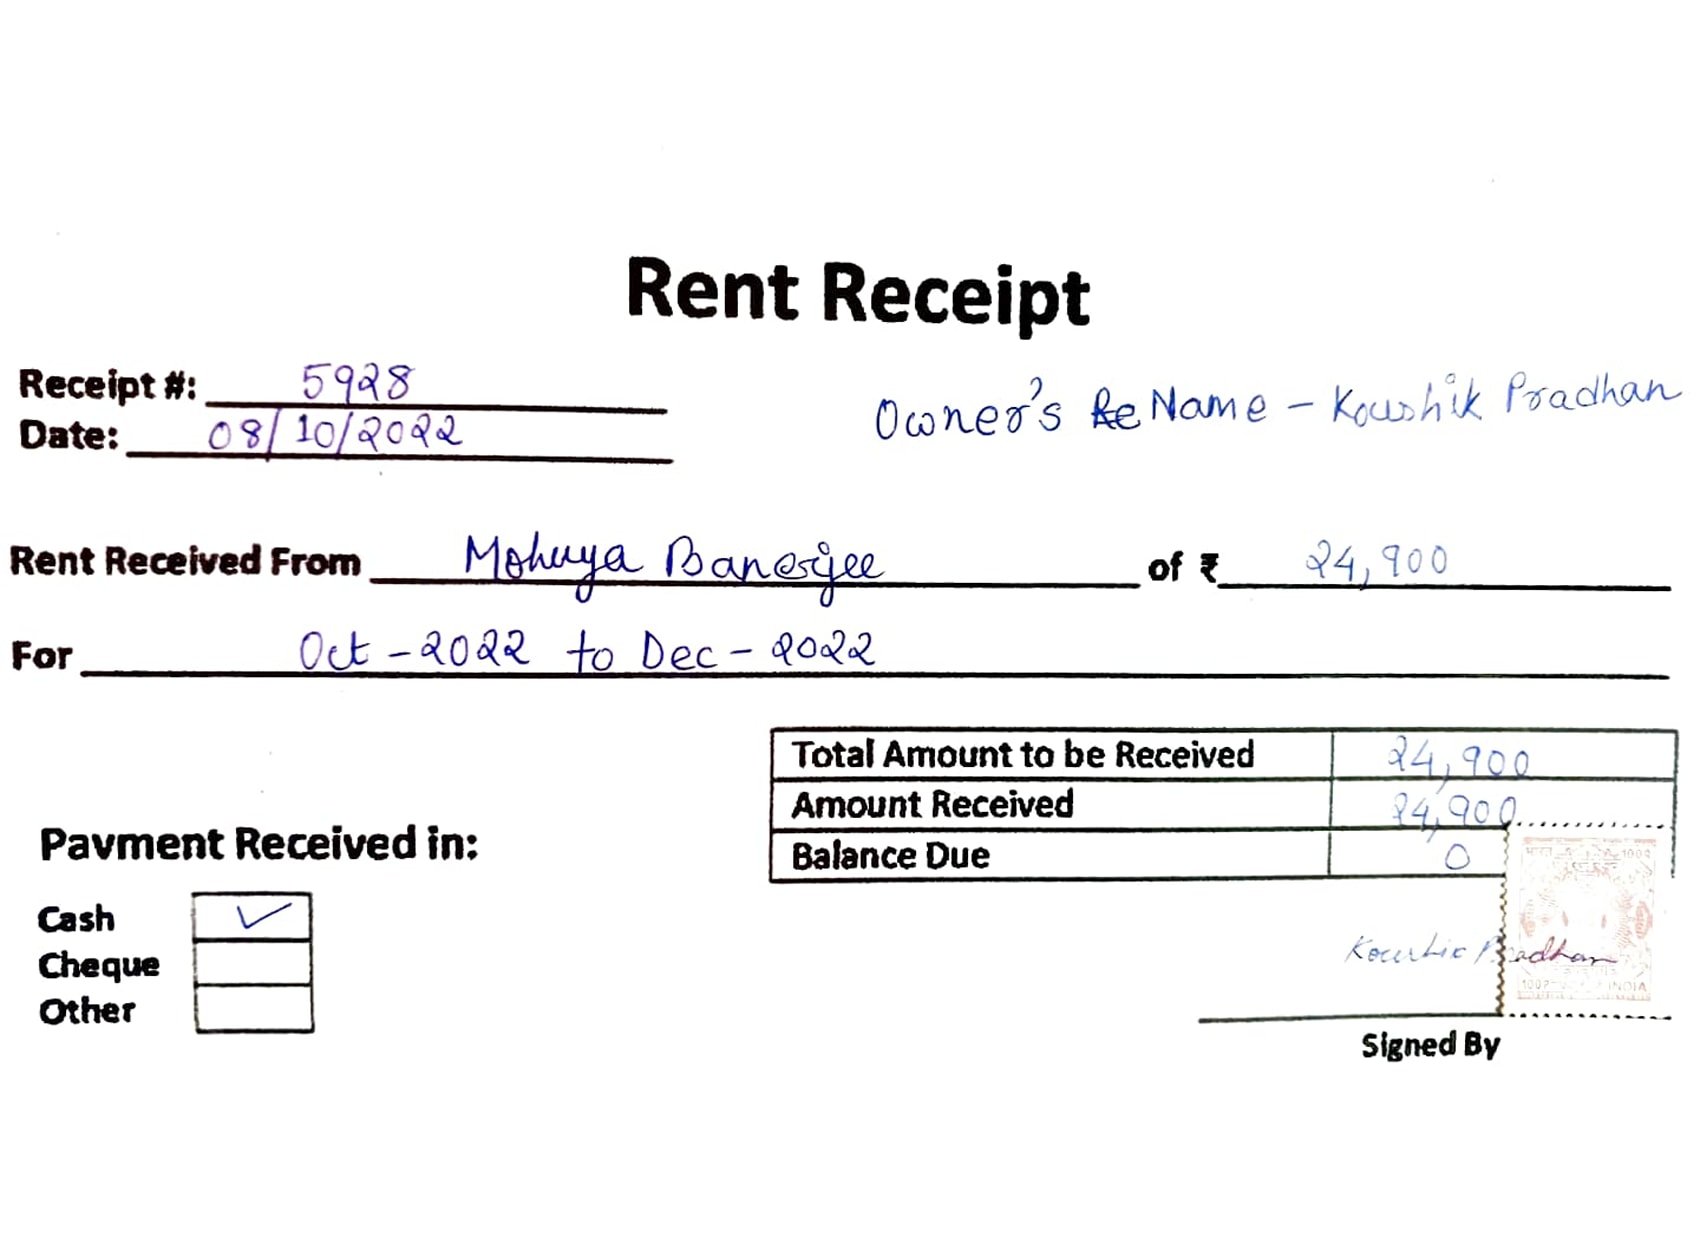 Rent Receipt
Receipt #: 5928
Owner's Re Name - Koushik Pradhan
Date: 08/10/2022
Rent Received From Mohuya Banerjee of ₹ 24,900
For Oct - 2022 to Dec - 2022
Total Amount to be Received 24,900
Amount Received 24,900
Balance Due 0
Pavment Received in:
Cash ✓
Cheque
Other
Koushik Pradhan
INDIA
Signed By